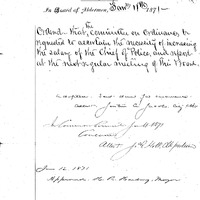 In Board of Aldermen, Jany 11th 1871
The
Ordered that, Committee on Ordinances, be
requested to ascertain the necessity of increasing
the salary of the Chief of Police, and report
at the next regular meeting of this Board.
Adopted. Sent down for concurrence
Attest
In Common Council Jan 11 1871
Concurred
Attest
Jan 12 1871
Approved. Mayor